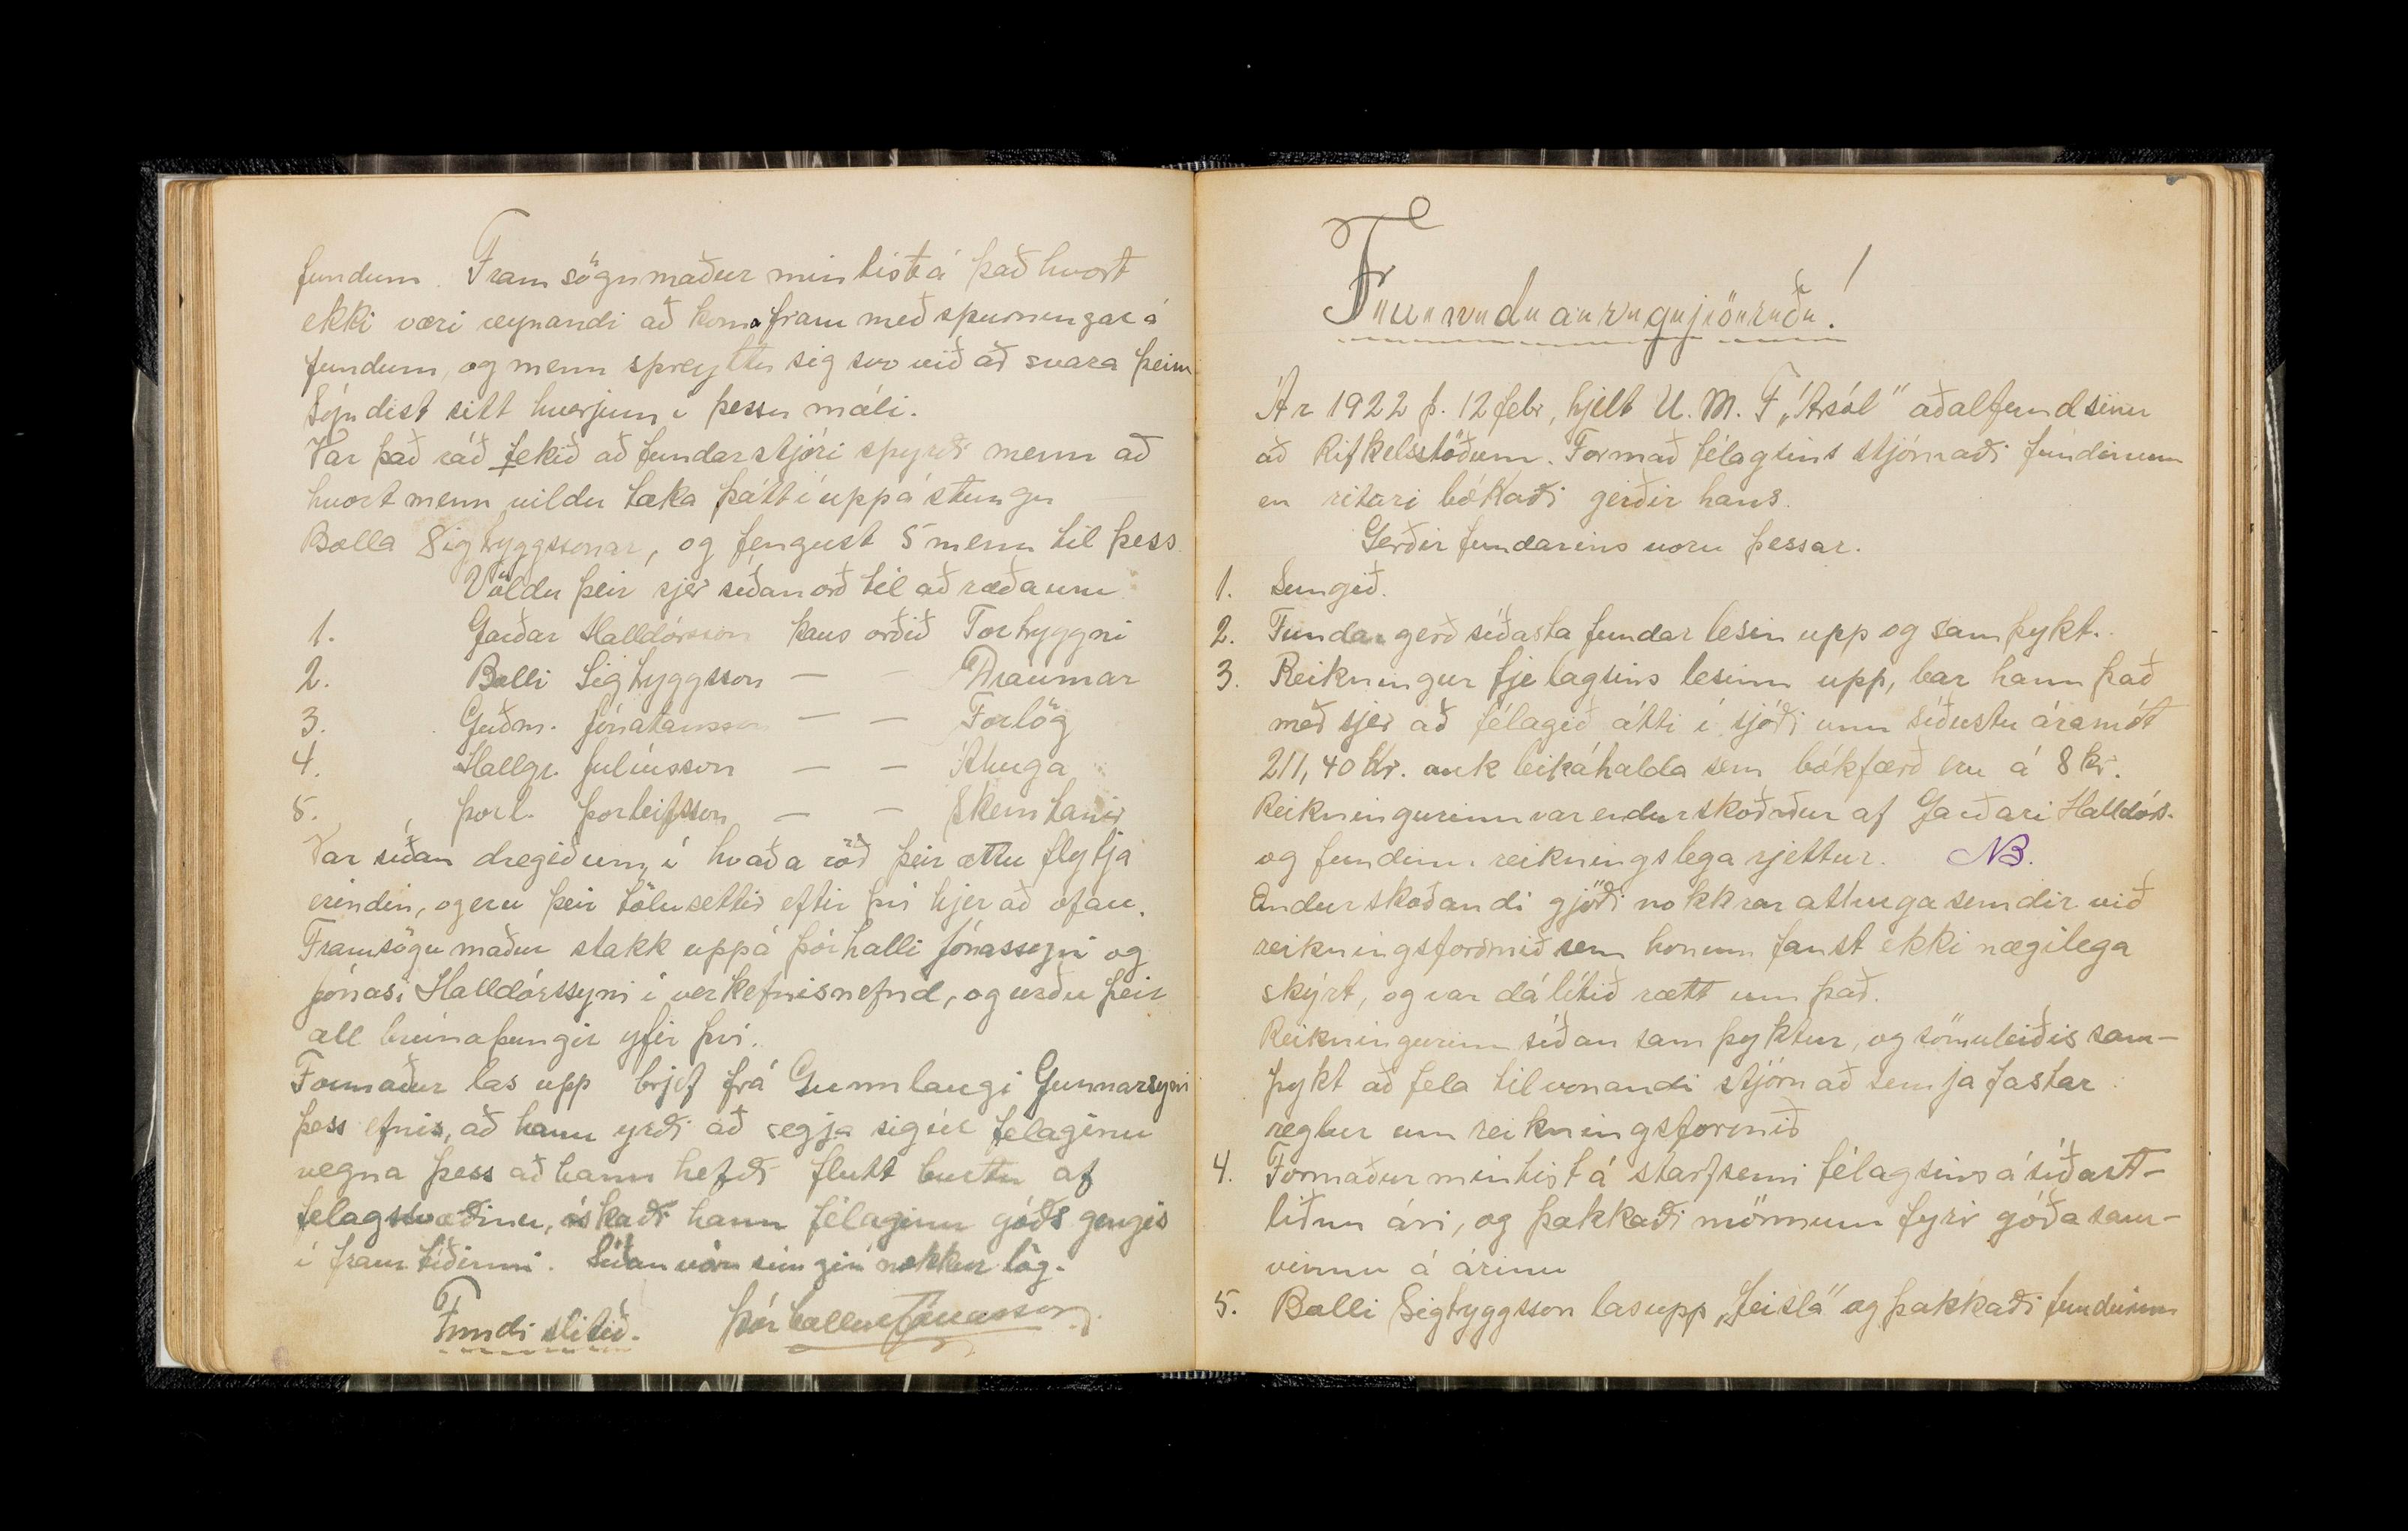 fundum. Framsögumaður mintist á það hvort
ekki væri reynandi að koma fram með spurningar á
fundum, og menn spreyttu sig svo við að svara þeim
Sýndist sitt hverjum í þessu máli.
Var það ráð tekið að fundarstjóri spyrði menn að
hvort menn vildu taka þátt í uppástungu
Balla Sigtryggssonar, og fengust 5 menn til þess
Völdu þeir sjer síðan orð til að ræða um
1. Garðar Halldórsson kaus orðið Tortryggni
2. Balli Sigtryggsson — — Draumar
3. Guðm. Jónatansson — — Forlög
4. Hallgr. Júlíusson — — Áhuga
5. Þorl. Þorleifsson — — Skemtanir
Var síðan dregið um, í hvaða röð þeir ættu flytja
erindin, og eru þeir tölusettir eftir því hjer að ofan.
Framsögumaður stakk uppá Þórhalli Jónassyni og
Jónasi Halldórssyni í verkefnisnefnd, og urðu þeir
all brúnaþungir yfir því.
Formaður las upp brjef frá Gunnlaugi Gunnarssyni
þess efnis, að hann yrði að segja sig úr félaginu
vegna þess að hann hefði flutt burtu af
félagssvæðinu, óskaði hann félaginu góðs gengis
í framtíðinni. Síðan voru sungin nokkur lög.
Fundi slitið. Þórhallur Jónasson
Fundargjörð!
Ár 1922 þ. 12 febr, hjelt U. M. F „Ársól" aðalfund sinn
að Rifkelsstöðum. Formað félagsins stjórnaði fundinum
en ritari bókaði gerðir hans.
Gerðir fundarins voru þessar.
1. Sungið.
2. Fundargerð síðasta fundar lesin upp og samþykt.
3. Reikningur fjelagsins lesinn upp, bar hann það
með sjer að félagið átti í sjóði um síðustu áramót
211,40 Kr. auk leikáhalda sem bókfærð eru á 8 kr.
Reikningurinn var endurskoðaður af Garðari Halldórs.
og fundinn reikningslega rjettur. NB.
Endurskoðandi gjörði nokkrar athugasemdir við
reikningsformið sem honum fanst ekki nægilega
skýrt, og var dálítið rætt um það.
Reikningurinn síðan samþyktur, og sömuleiðis sam-
þykt að fela tilvonandi stjórn að semja fastar
reglur um reikningsformið
4. Formaður mintist á starfsemi félagsins á síðast-
liðnu ári, og þakkaði mönnum fyrir góða sam-
vinnu á árinu
5. Balli Sigtryggsson las upp „Geisla" og þakkaði fundurinn